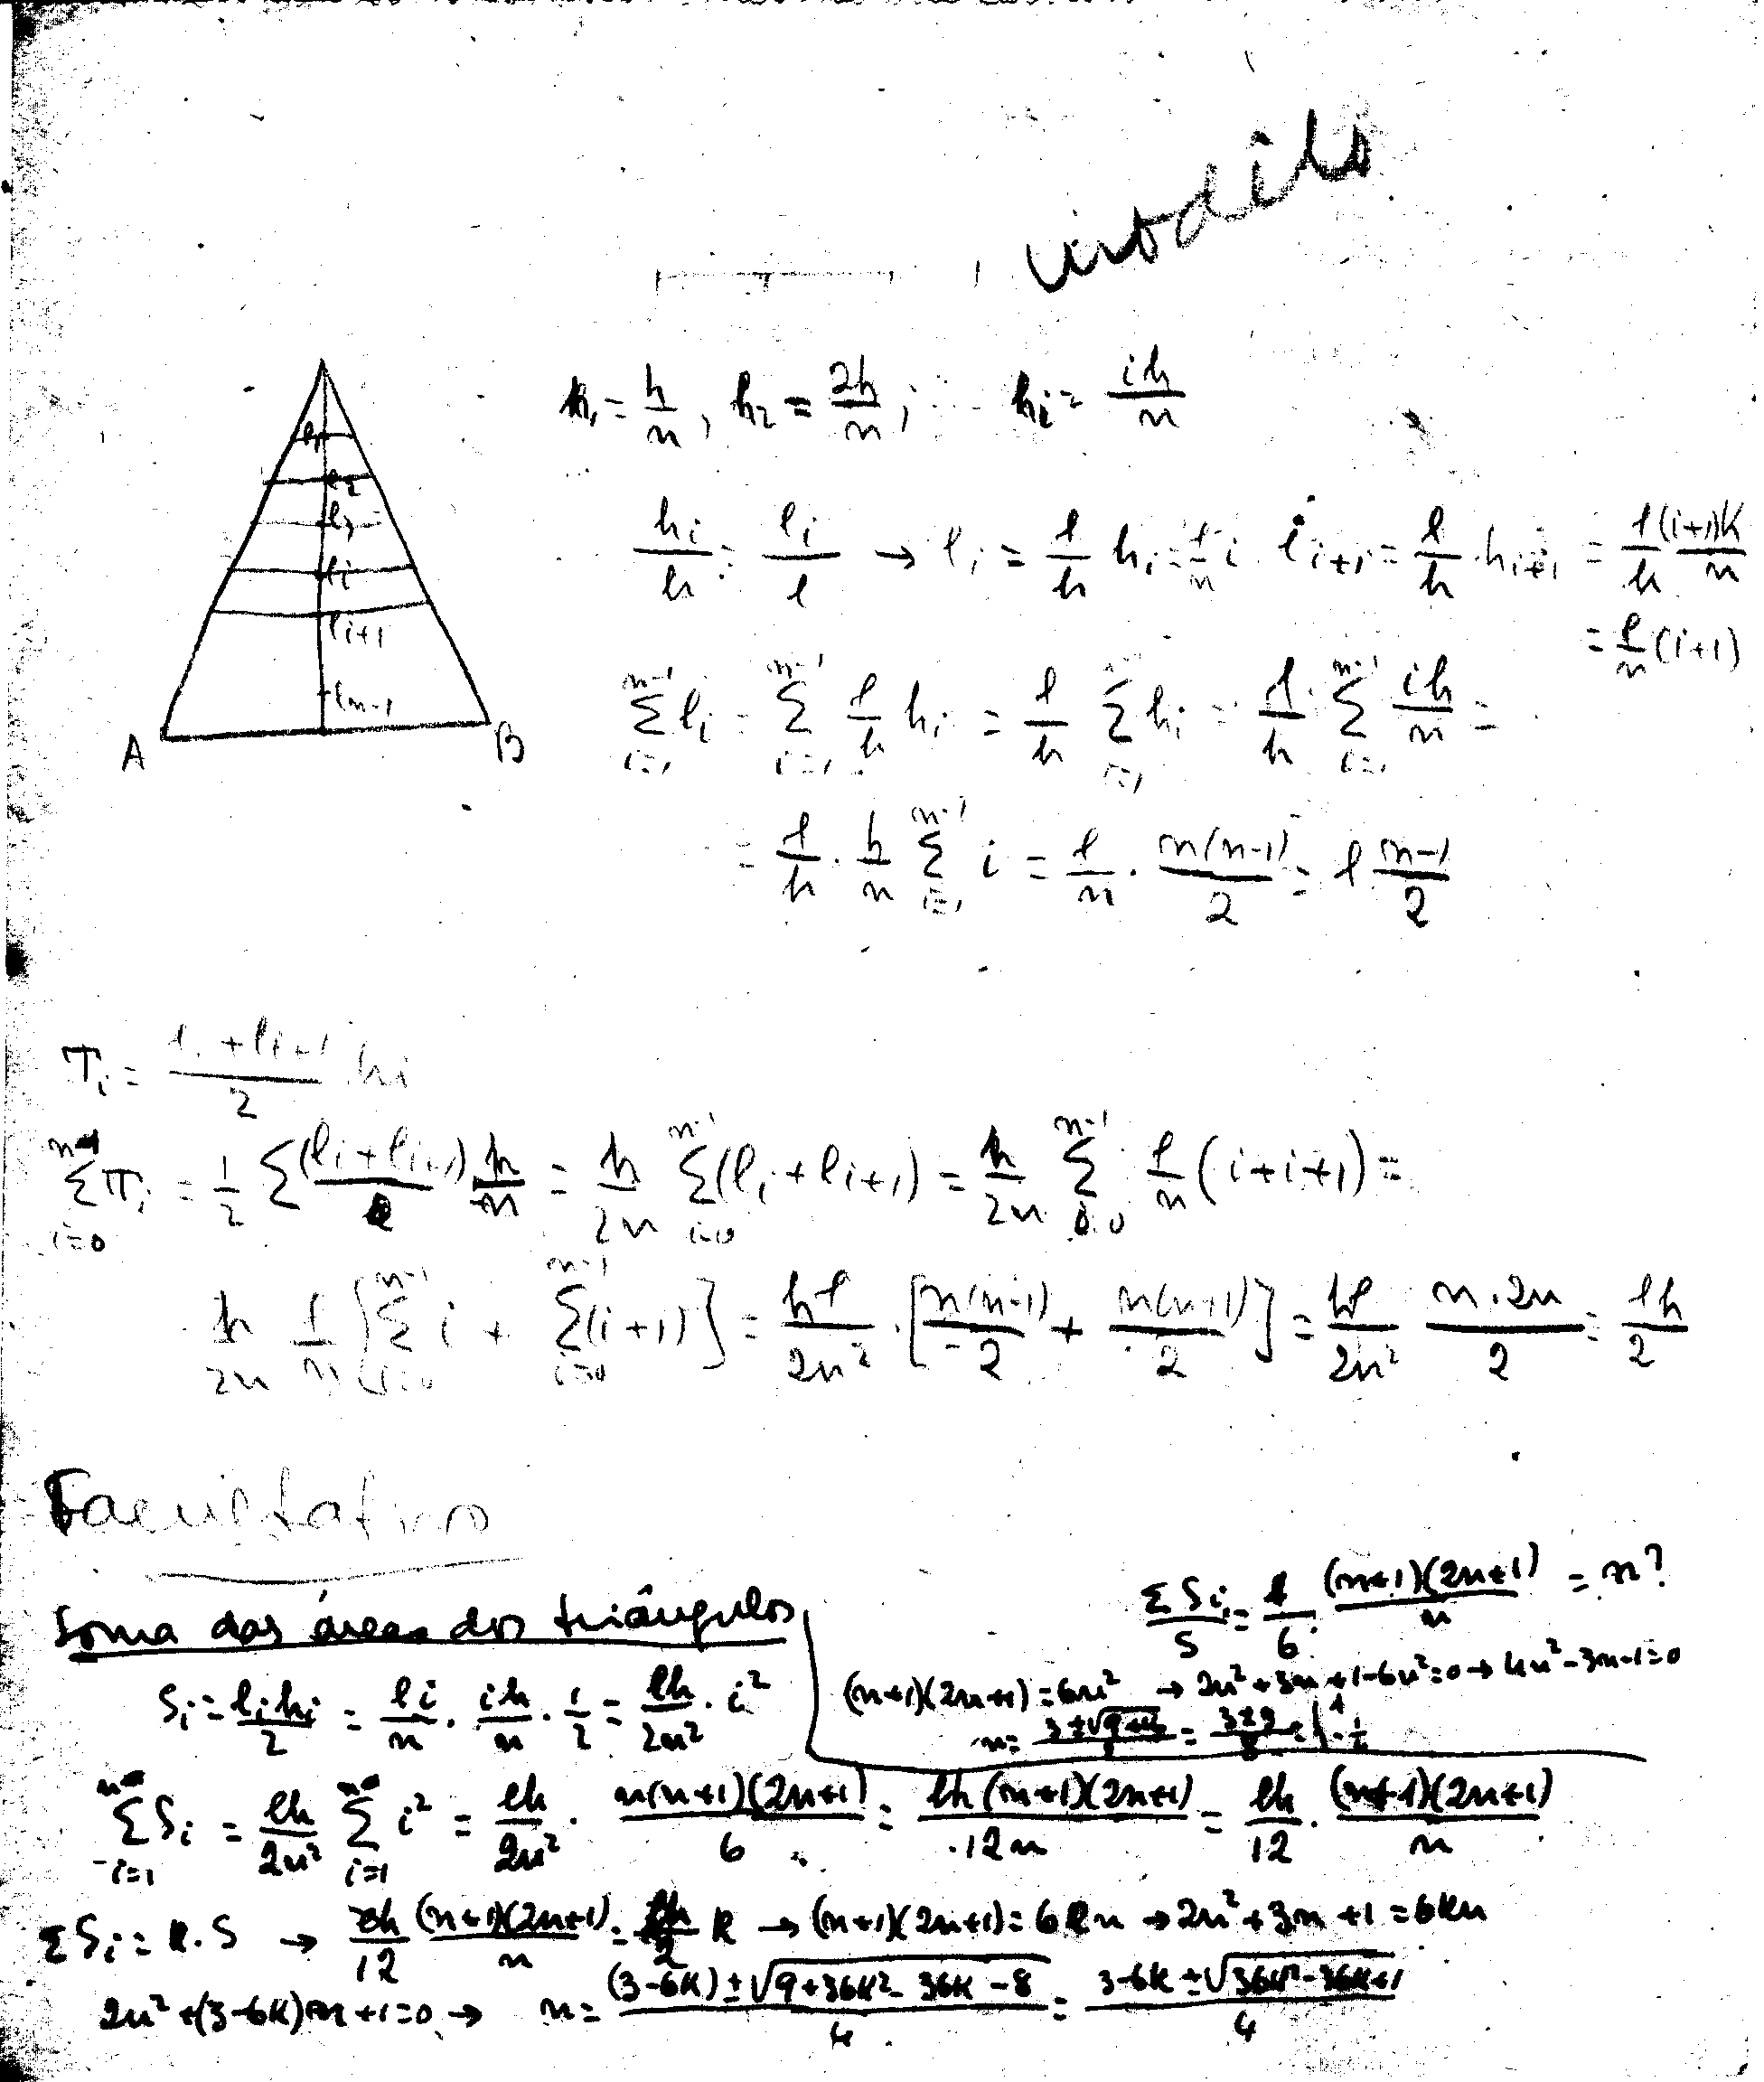 inédito
l₁
l₂
l₃
lᵢ
lᵢ₊₁
lₙ₋₁
A B
h₁ = h/n , h₂ = 2h/n ; ... hᵢ = ih/n
hᵢ/h = lᵢ/l → lᵢ = l/h hᵢ = l/n i lᵢ₊₁ = l/h · hᵢ₊₁ = l/h (i+1)h/n
= l/n (i+1)
Σᵢ₌₁ⁿ⁻¹ lᵢ = Σᵢ₌₁ⁿ⁻¹ l/h hᵢ = l/h Σᵢ₌₁ⁿ⁻¹ hᵢ = l/h · Σᵢ₌₁ⁿ⁻¹ ih/n =
= l/h · h/n Σᵢ₌₁ⁿ⁻¹ i = l/n · n(n-1)/2 = l (n-1)/2
Tᵢ = (lᵢ + lᵢ₊₁)/2 hᵢ
Σᵢ₌₀ⁿ⁻¹ Tᵢ = 1/2 Σ (lᵢ + lᵢ₊₁) h/n = h/2n Σᵢ₌₀ⁿ⁻¹ (lᵢ + lᵢ₊₁) = h/2n Σᵢ₌₀ⁿ⁻¹ l/n (i+i+1) =
h/2n l/n [Σᵢ₌₀ⁿ⁻¹ i + Σᵢ₌₀ⁿ⁻¹ (i+1)] = hl/2n² · [n(n-1)/2 + n(n+1)/2] = hl/2n² n·2n/2 = lh/2
Facultativo
Soma das áreas dos triângulos
ΣSᵢ/S = 1/6 · (n+1)(2n+1)/n = n?
(n+1)(2n+1) = 6n² → 2n²+3n+1-6n²=0 → 4n²-3n-1=0
Sᵢ = lᵢhᵢ/2 = li/n · ih/n · 1/2 = lh/2n² · i²
Σᵢ₌₁ⁿ Sᵢ = lh/2n² Σᵢ₌₁ⁿ i² = lh/2n² · n(n+1)(2n+1)/6 = lh(n+1)(2n+1)/12n = lh/12 · (n+1)(2n+1)/n
ΣSᵢ = k.S → lh/12 (n+1)(2n+1)/n = lh/2 k → (n+1)(2n+1) = 6kn → 2n²+3n+1 = 6kn
2n²+(3-6k)n+1=0 → n = ((3-6k)±√(9+36k²-36k-8))/4 = (3-6k±√(36k²-36k+1))/4